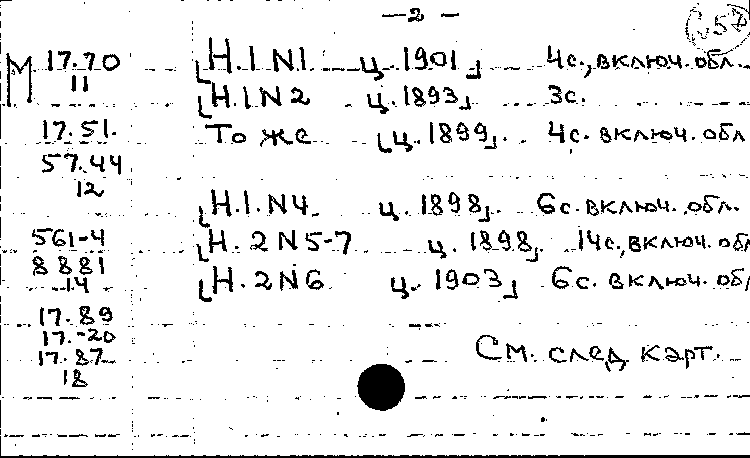 — 2 —
М 17.70 [Н.1 N1 ц. 1901] 4с., включ. обл.
11
[Н.1 N2 ц. 1893] 3с.
17.51. То же [ц. 1899]. 4с. включ. обл
57.44
12
[Н.1. N4. ц. 1898]. 6с. включ. обл.
561-4 [Н. 2 N 5-7 ц. 1898]. 14с., включ. обл
8881 [Н. 2 N6 ц. 1903] 6с. включ. обл
14
17.89
17.-20
17.87 См. след карт.
18